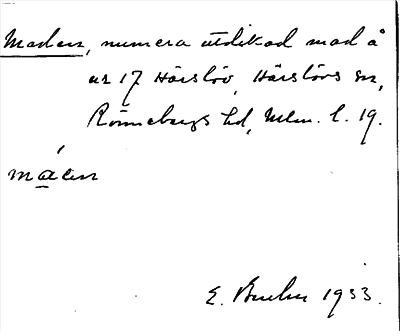 Maden, numera utdikad mad å
nr 17 Härslöv, Härslövs sn,
Rönnebergs hd, Mlm. l. 19.
máden
E. 1933.